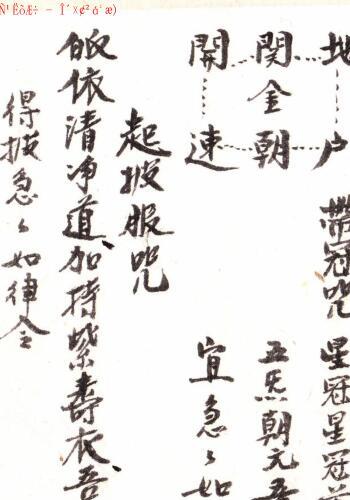 地户
帶冠咒
星冠星冠
関金朝
五炁朝元
開速
宜急々如
起披服咒
皈依清净道加持紫壽衣吾
得披急々如律令